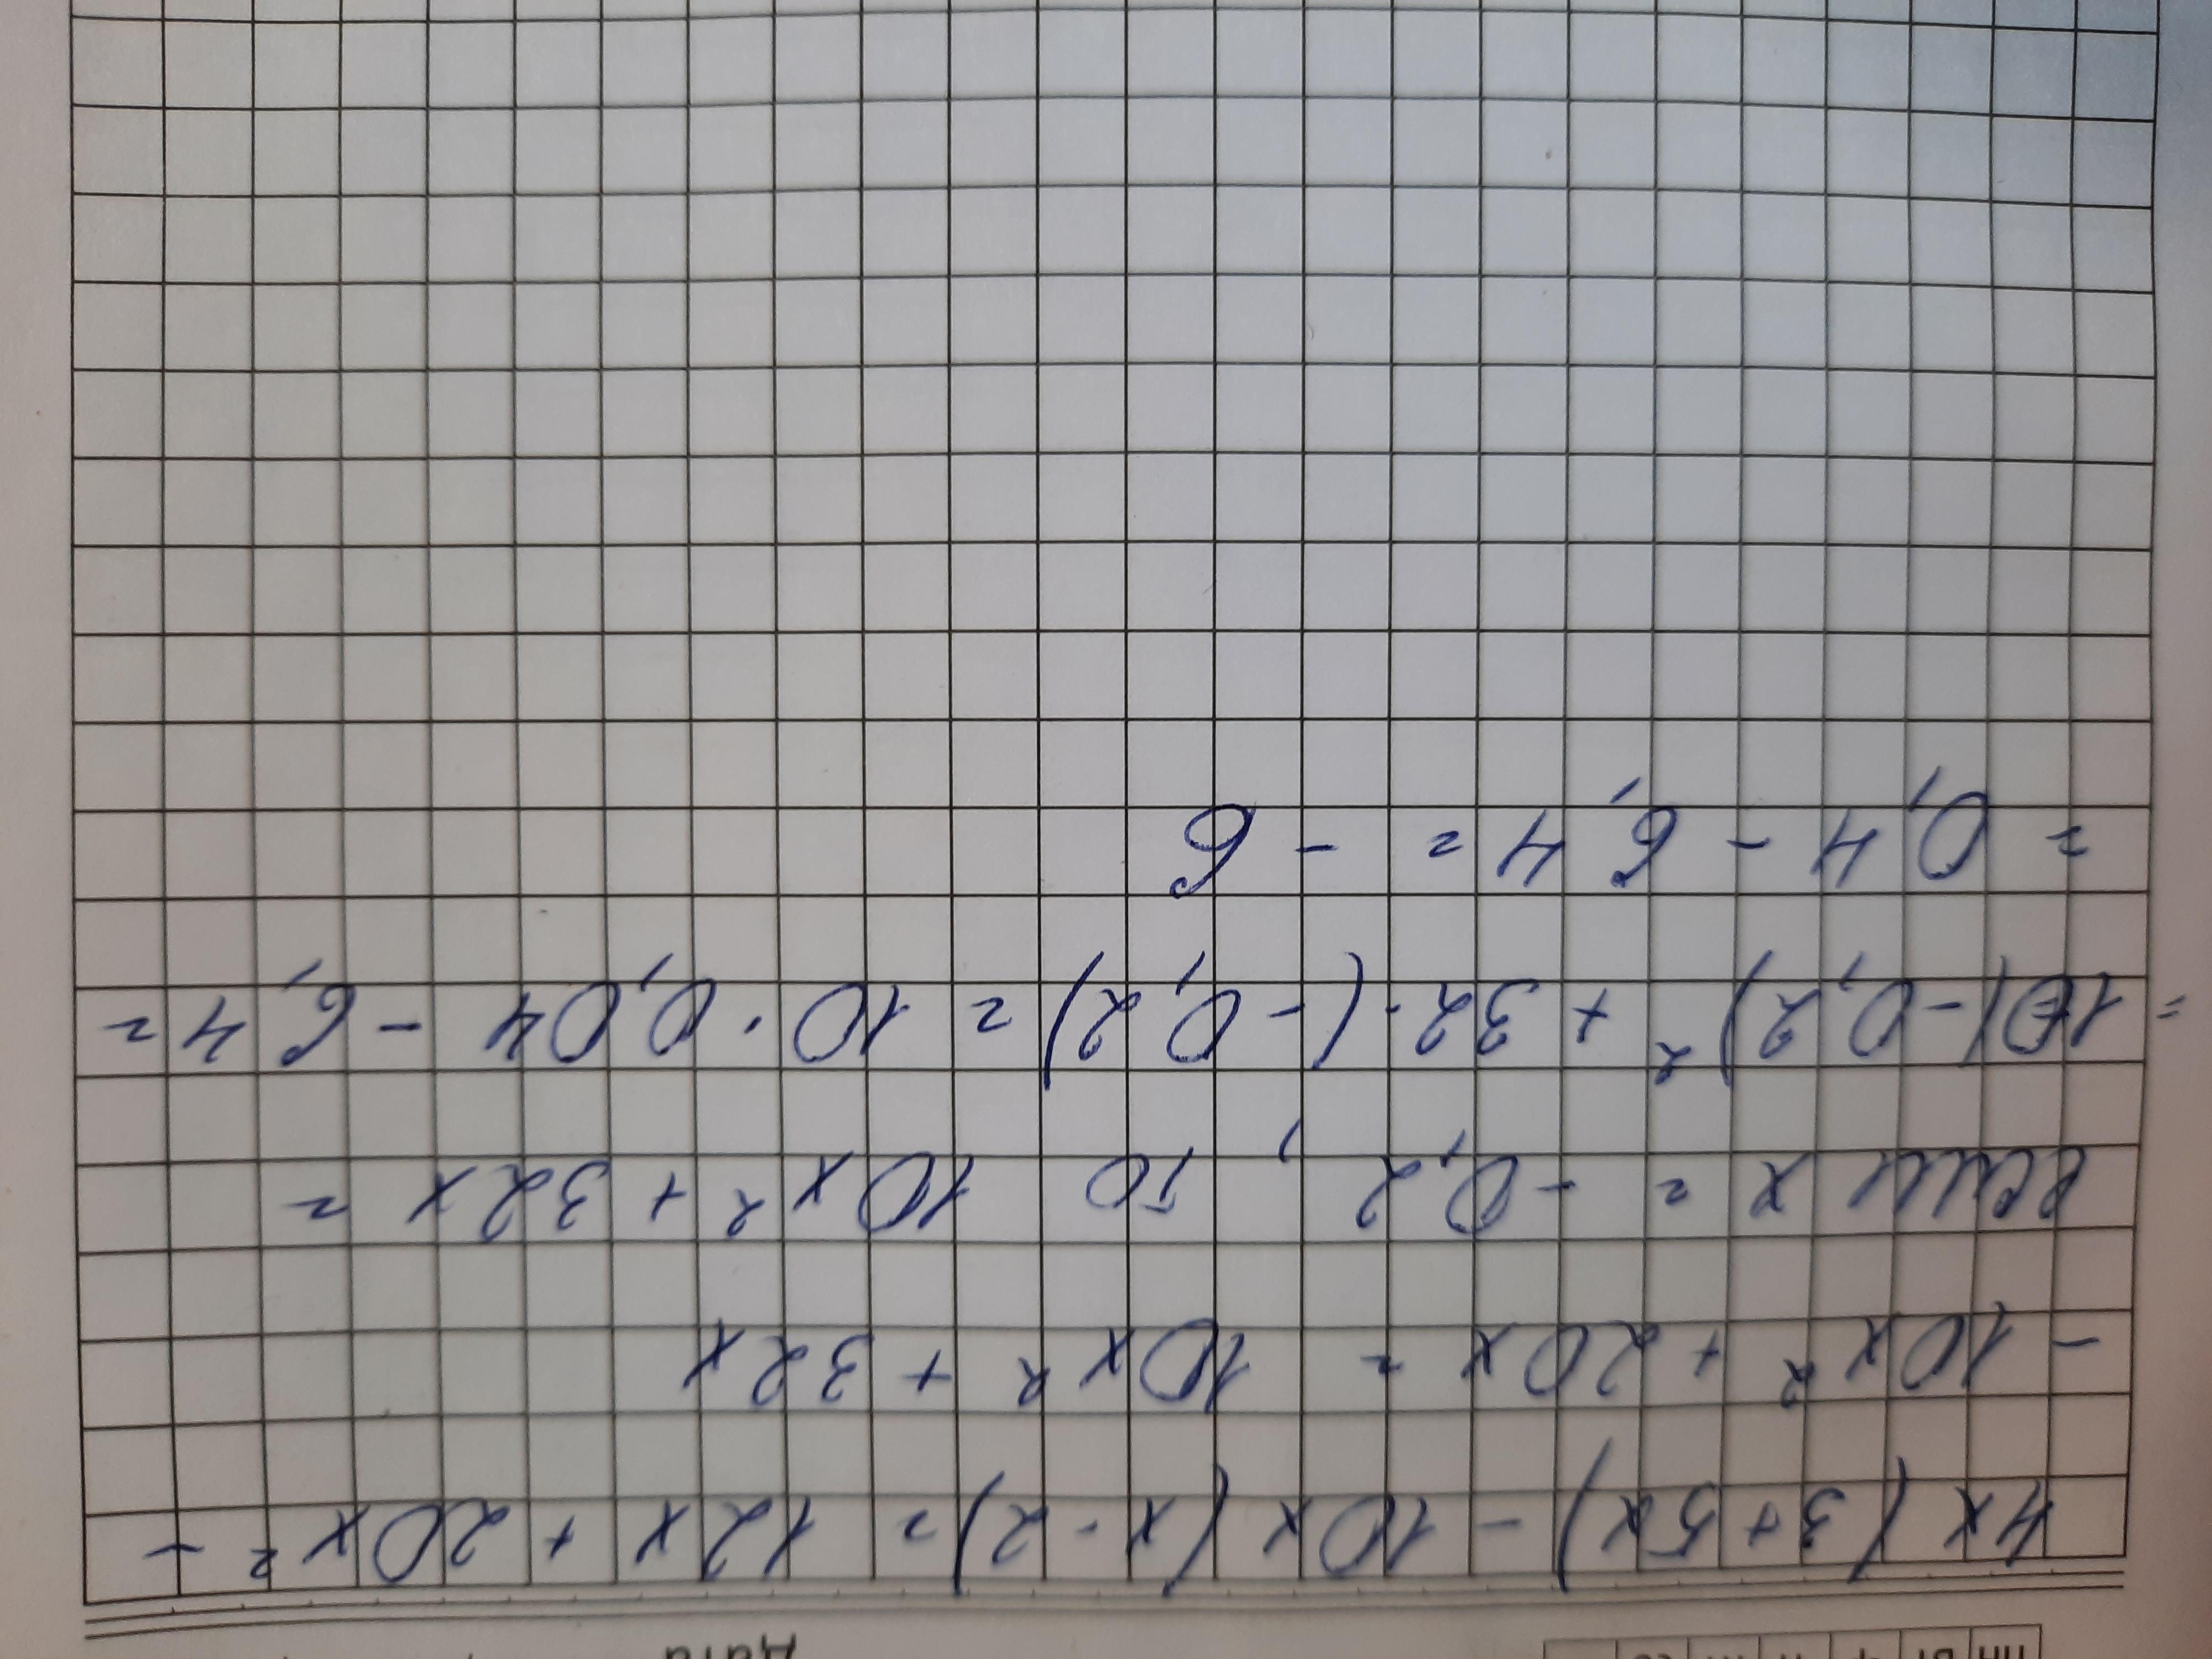 Дата
4x(3+5x)-10x(x-2)=12x+20x²-
-10x²+20x=10x²+32x
если x=-0,2, то 10x²+32x=
=10(-0,2)²+32·(-0,2)=10·0,04-6,4=
=0,4-6,4=-6